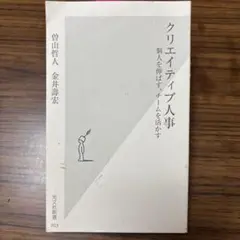 クリエイティブ人事
個人を伸ばす、チームを活かす
曽山哲人 金井壽宏
光文社新書